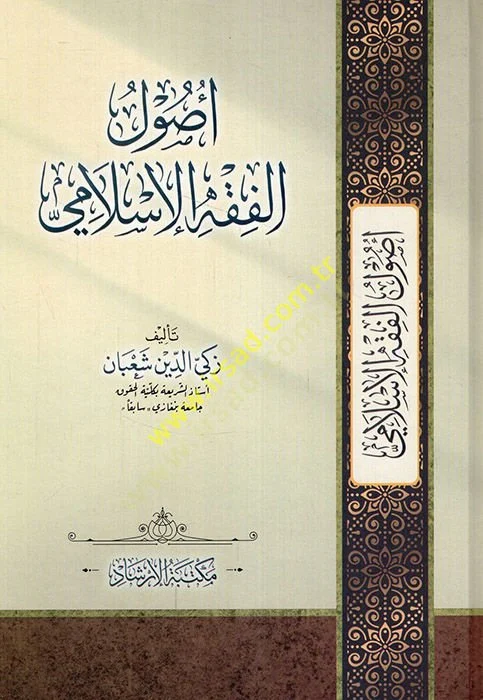 أُصُولُ
الفِقْهِ الإِسْلَامِيِّ
تَأليف
زكيّ الدّين شَعْبان
أستاذ الشريعة بكليّة الحقوق
جامعة بنغازي «سابقاً»
مكتبة الإرشاد
أُصُولُ الفِقْهِ الإِسْلَامِيِّ